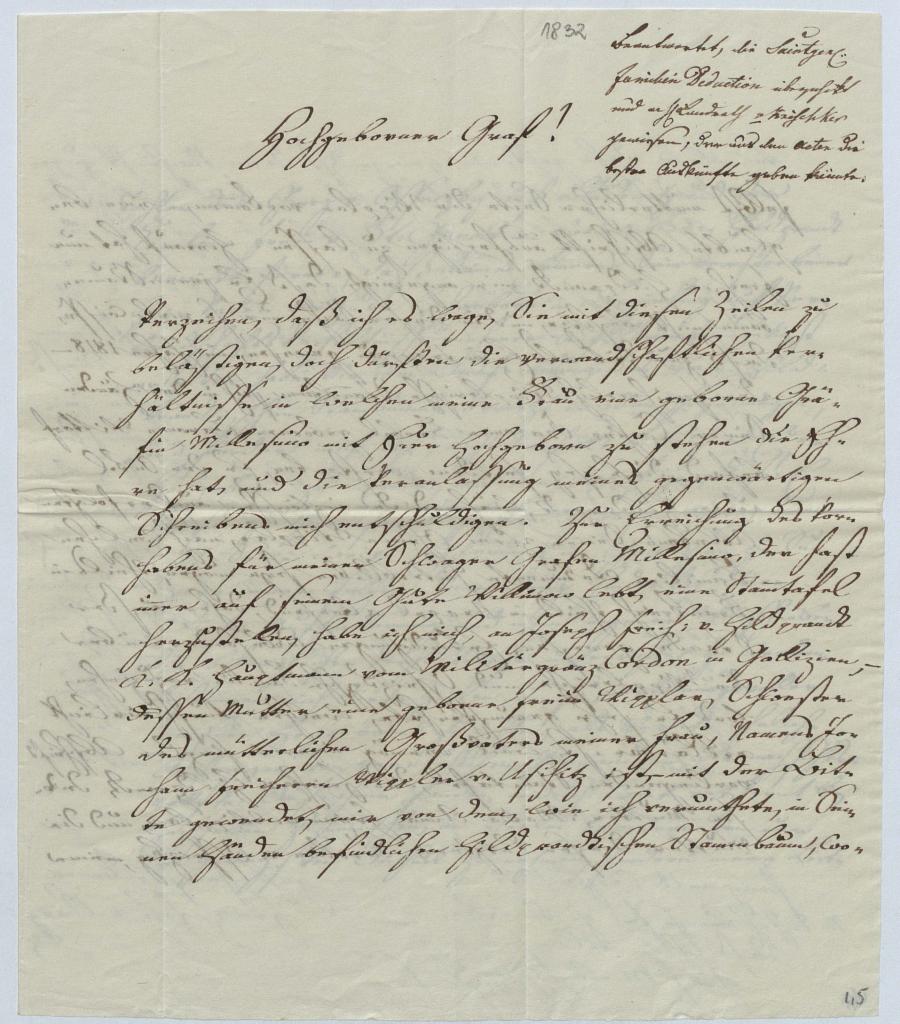 1832
Beantwortet, die
Familien Deduction überschickt
und an H Landrath
gewiesen, der aus den Acten die
besten Auskünfte geben könnte.
Hochgeborner Graf!
Verzeihen, daß ich es wage, Sie mit diesen Zeilen zu
belästigen, doch dürften die verwandschaftlichen Ver-
hältnisse in welchen meine Frau eine geborne Grä-
fin Millesimo mit Euer Hochgeborn zu stehen die Eh-
re hat, und die Veranlassung meines gegenwärtigen
Schreibens mich entschuldigen. Zur Erreichung des Vor-
habens für meinen Schwager Grafen Millesimo, der fast
immer auf seinem Gute Willimow lebt, eine Stammtafel
herzustellen, habe ich mich an Joseph Freih: v. Hildprandt
K. K. Hauptmann vom Militärgränz Cordon in Gallizien,
dessen Mutter eine geborne Freiin Wippler, Schwester
des mütterlichen Großvaters meiner Frau, Namens Jo-
hann Freiherrn Wippler v. Uschitz ist, mit der Bit-
te gewendet, mir von dem, wie ich vermuthete, in Sei-
nen Händen befindlichen Hildprandtischen Stammbaum, wo-
45